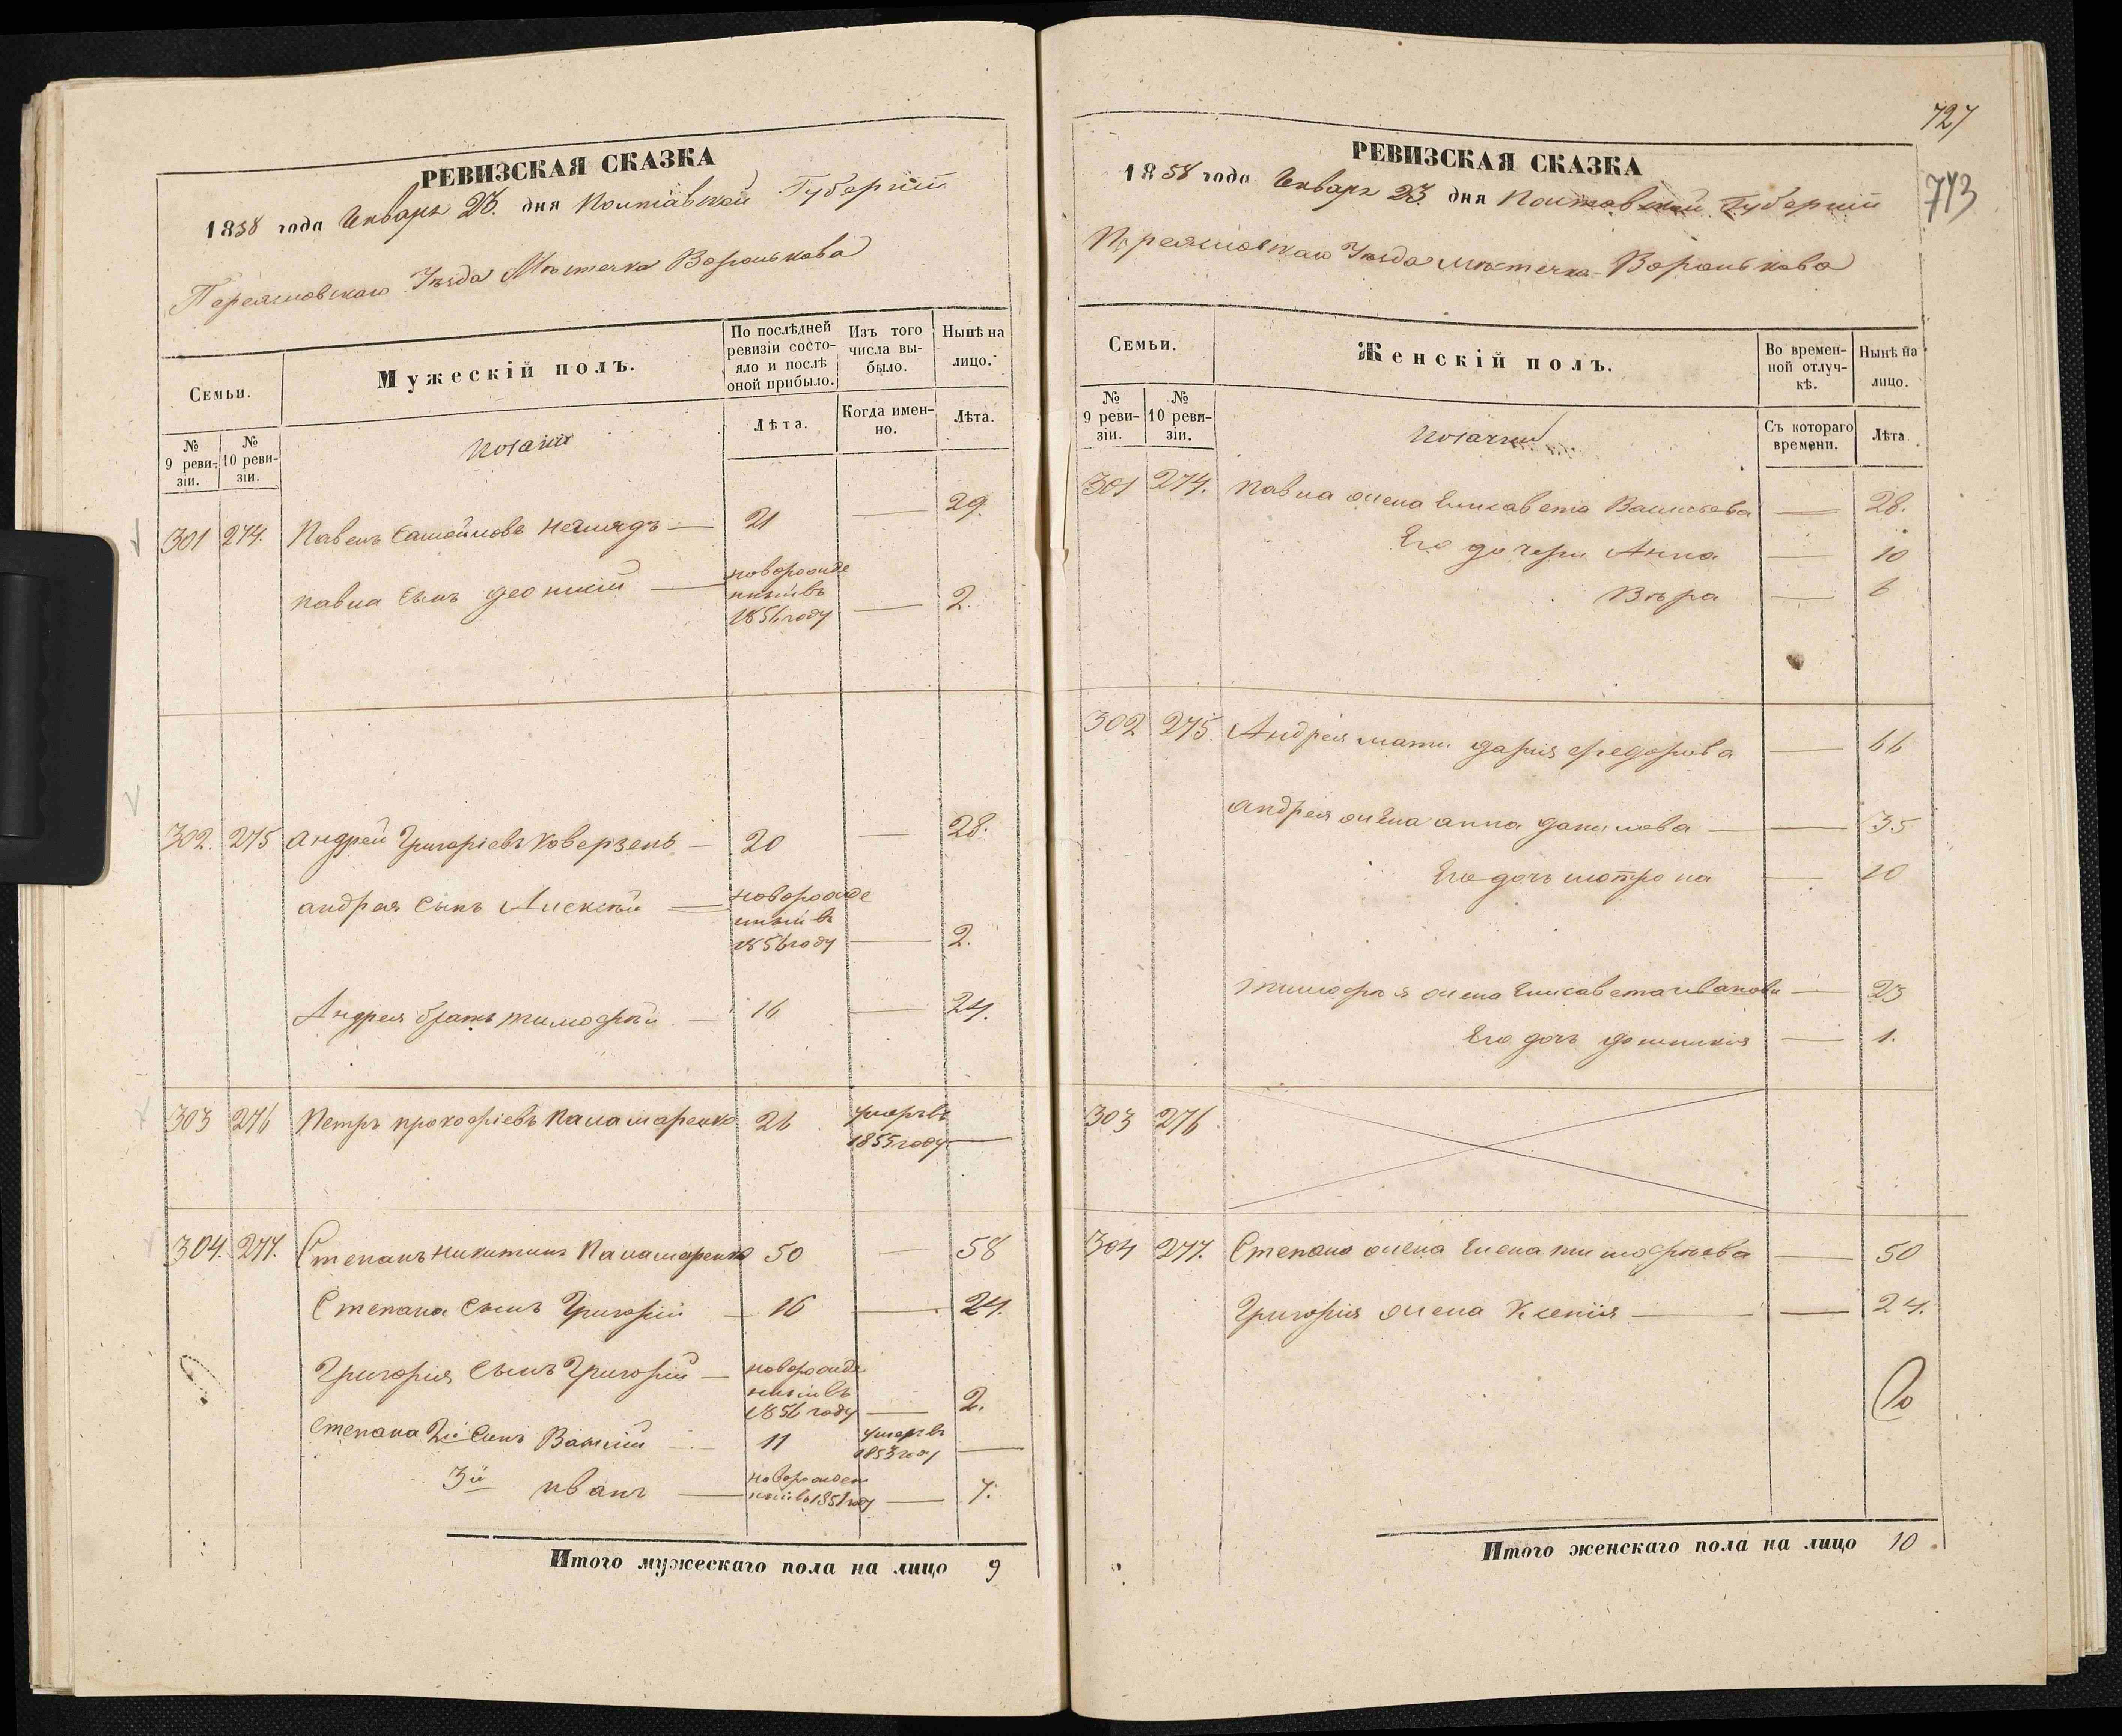 РЕВИЗСКАЯ СКАЗКА
1858 года Генваря 23. дня Полтавской Губерніи
Переяславскаго Уѣзда Мѣстечка Воронькова
Семьи.
Мужескій полъ.
По послѣдней ревизіи состояло и послѣ оной прибыло.
Изъ того числа выбыло.
Нынѣ на лицо.
№ 9 ревизіи.
№ 10 ревизіи.
Лѣта.
Когда именно.
Лѣта.
козаки
301 274. Павелъ Самойловъ — 21 — 29.
павла сынъ — новорожденный въ 1856 году — 2.
302. 275 Андрей Григоріевъ Коверзень — 20 — 28.
андрея сынъ Алексѣй — новорожденный въ 1856 году — 2.
Андрея братъ тимофѣй — 16 — 24.
303 276 Петръ прокофіевъ Паламаренко 26 умеръ въ 1855 году —
304. 277. Степанъ никитинъ Паламаренко 50 — 58
Степана сынъ Григорій — 16 — 24.
Григорія сынъ Григорій — новорожденный въ 1856 году — 2.
Степана 2й сынъ Василій — 11 умеръ въ 1853 году —
3й иванъ — новорожденный въ 1851 году — 7.
Итого мужескаго пола на лицо 9
727
713
РЕВИЗСКАЯ СКАЗКА
1858 года Генваря 23 дня Полтавской Губерніи
Переяславскаго Уѣзда мѣстечка Воронькова
Семьи.
Женскій полъ.
Во временной отлучкѣ.
Нынѣ на лицо.
№ 9 ревизіи.
№ 10 ревизіи.
Съ котораго времени.
Лѣта.
козачки
301 274. павла жена Елисавета Васильева — 28.
Его дочери Анна — 10
Вѣра — 6
302 275. Андрея мать дарія федорова — 66
андрея жена анна данилова — 35
Его дочь мотрона — 10
тимофѣя жена Елисавета иванова — 23
Его дочь домникія — 1.
303 276.
304 277. Степана жена Елена тимофѣева — 50
Григорія жена Ксенія — 24.
Итого женскаго пола на лицо 10